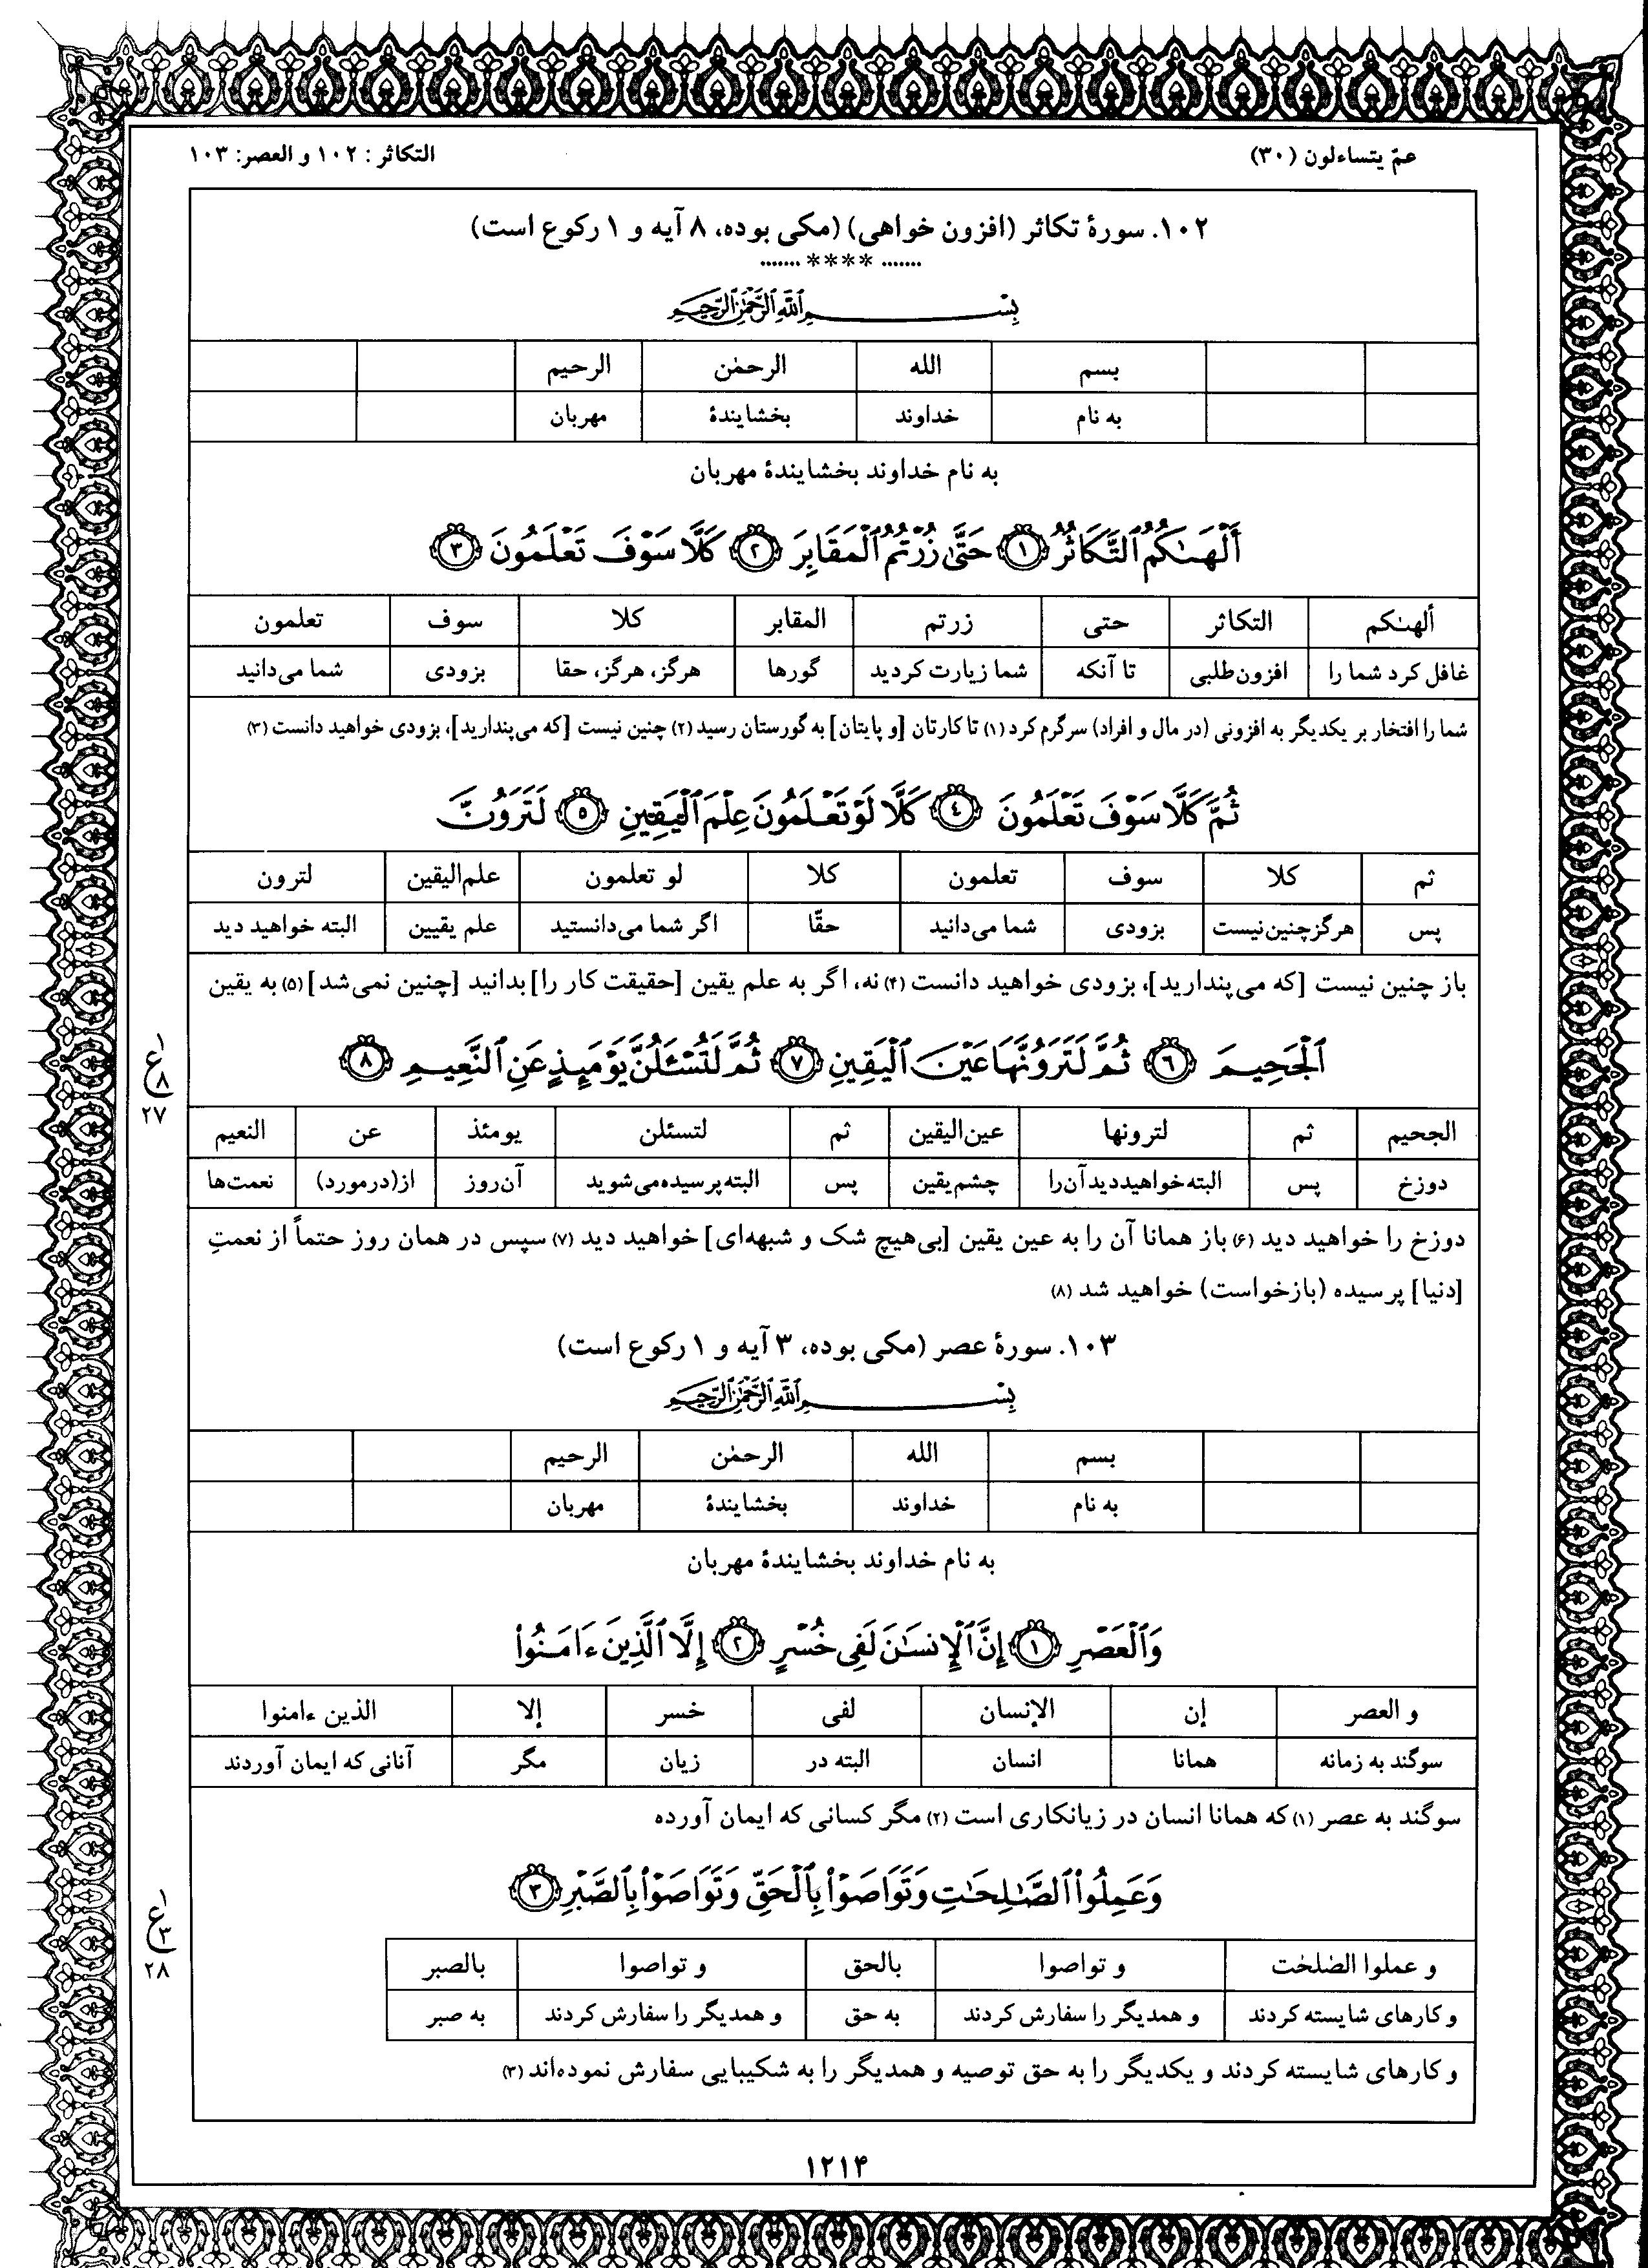 عمّ یتساءلون (۳۰)
التکاثر : ۱۰۲ و العصر: ۱۰۳
۱۰۲. سورهٔ تکاثر (افزون خواهی) (مکی بوده، ۸ آیه و ۱ رکوع است)
....... **** .......
بِسْمِ ٱللَّهِ ٱلرَّحْمَٰنِ ٱلرَّحِيمِ
بسم الله الرحمٰن الرحیم
به نام خداوند بخشایندهٔ مهربان
به نام خداوند بخشایندهٔ مهربان
أَلْهَىٰكُمُ ٱلتَّكَاثُرُ ١ حَتَّىٰ زُرْتُمُ ٱلْمَقَابِرَ ٢ كَلَّا سَوْفَ تَعْلَمُونَ ٣
ألهىٰكم التكاثر حتى زرتم المقابر كلا سوف تعلمون
غافل کرد شما را افزون‌طلبی تا آنکه شما زیارت کردید گورها هرگز، هرگز، حقا بزودی شما می‌دانید
شما را افتخار بر یکدیگر به افزونی (در مال و افراد) سرگرم کرد (۱) تا کارتان [و پایتان] به گورستان رسید (۲) چنین نیست [که می‌پندارید]، بزودی خواهید دانست (۳)
ثُمَّ كَلَّا سَوْفَ تَعْلَمُونَ ٤ كَلَّا لَوْ تَعْلَمُونَ عِلْمَ ٱلْيَقِينِ ٥ لَتَرَوُنَّ
ثم كلا سوف تعلمون كلا لو تعلمون علم‌الیقین لترون
پس هرگز چنین نیست بزودی شما می‌دانید حقّا اگر شما می‌دانستید علم یقیین البته خواهید دید
باز چنین نیست [که می‌پندارید]، بزودی خواهید دانست (۴) نه، اگر به علم یقین [حقیقت کار را] بدانید [چنین نمی‌شد] (۵) به یقین
ٱلْجَحِيمَ ٦ ثُمَّ لَتَرَوُنَّهَا عَيْنَ ٱلْيَقِينِ ٧ ثُمَّ لَتُسْـَٔلُنَّ يَوْمَئِذٍ عَنِ ٱلنَّعِيمِ ٨
۱
ع
۸
۲۷
الجحیم ثم لترونها عین‌الیقین ثم لتسئلن یومئذ عن النعیم
دوزخ پس البته خواهید دید آن را چشم یقین پس البته پرسیده می‌شوید آن روز از(درمورد) نعمت‌ها
دوزخ را خواهید دید (۶) باز همانا آن را به عین یقین [بی‌هیچ شک و شبهه‌ای] خواهید دید (۷) سپس در همان روز حتماً از نعمتِ
[دنیا] پرسیده (بازخواست) خواهید شد (۸)
۱۰۳. سورهٔ عصر (مکی بوده، ۳ آیه و ۱ رکوع است)
بِسْمِ ٱللَّهِ ٱلرَّحْمَٰنِ ٱلرَّحِيمِ
بسم الله الرحمٰن الرحیم
به نام خداوند بخشایندهٔ مهربان
به نام خداوند بخشایندهٔ مهربان
وَٱلْعَصْرِ ١ إِنَّ ٱلْإِنسَـٰنَ لَفِى خُسْرٍ ٢ إِلَّا ٱلَّذِينَ ءَامَنُوا۟
و العصر إن الإنسان لفی خسر إلا الذین ءامنوا
سوگند به زمانه همانا انسان البته در زیان مگر آنانی که ایمان آوردند
سوگند به عصر (۱) که همانا انسان در زیانکاری است (۲) مگر کسانی که ایمان آورده
وَعَمِلُوا۟ ٱلصَّـٰلِحَـٰتِ وَتَوَاصَوْا۟ بِٱلْحَقِّ وَتَوَاصَوْا۟ بِٱلصَّبْرِ ٣
۱
ع
۳
۲۸
و عملوا الصٰلحٰت و تواصوا بالحق و تواصوا بالصبر
و کارهای شایسته کردند و همدیگر را سفارش کردند به حق و همدیگر را سفارش کردند به صبر
و کارهای شایسته کردند و یکدیگر را به حق توصیه و همدیگر را به شکیبایی سفارش نموده‌اند (۳)
۱۲۱۴